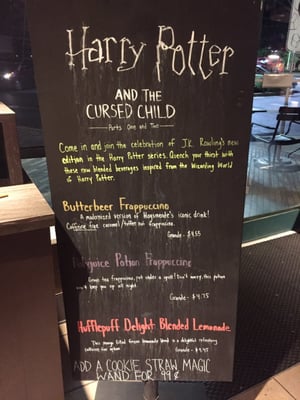 Harry Potter
AND THE
CURSED CHILD
Parts One and Two
Come in and join the celebration of J.K. Rowling's new
edition in the Harry Potter series. Quench your thirst with
these new blended beverages inspired from the Wizarding World
of Harry Potter.
Butterbeer Frappuccino
A modernized version of Hogsmeade's iconic drink!
Caffeine free caramel/toffee nut frappuccino.
Grande - $4.55
Polyjuice Potion Frappuccino
Green tea frappuccino, put under a spell! Don't worry, this potion
won't keep you up all night.
Grande - $4.75
Hufflepuff Delight Blended Lemonade
This mango tinted frozen lemonade blend is a delightful refreshing
caffeine free option
Grande - $3.45
ADD A COOKIE STRAW MAGIC
WAND FOR 99¢